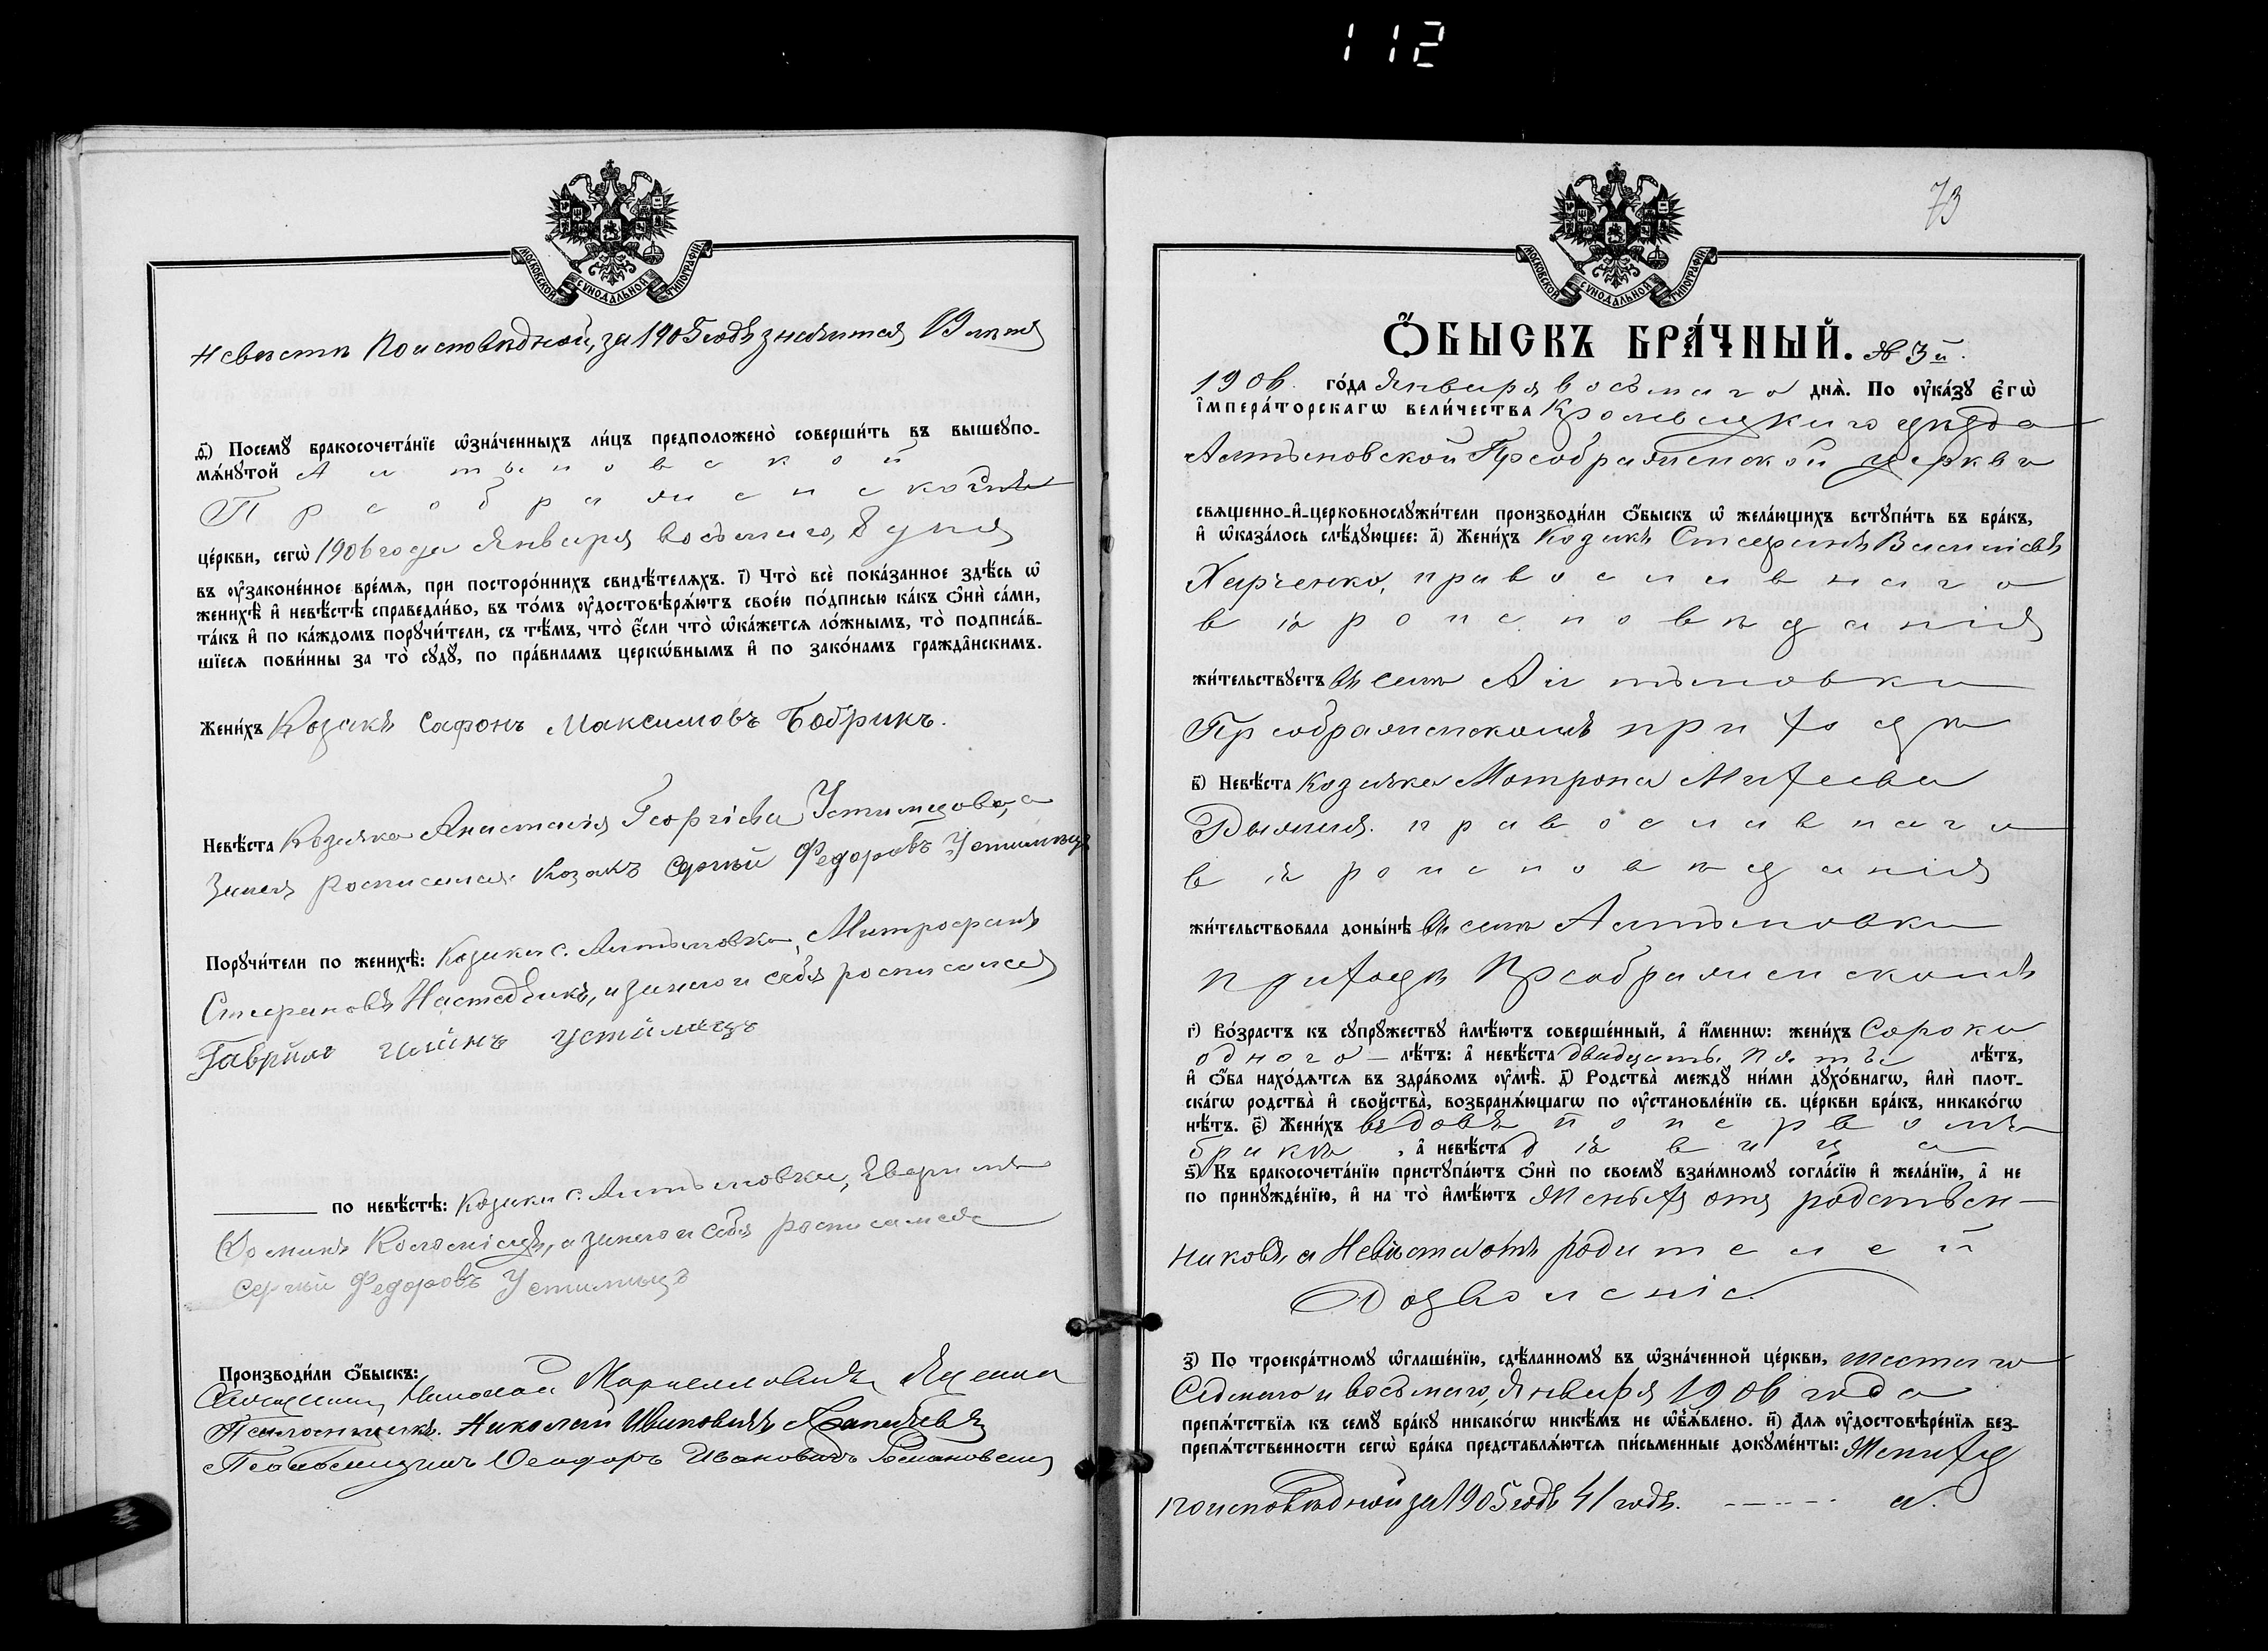 112
МОСКОВСКОЙ СѴНОДАЛЬНОЙ ТИПОГРАФІИ
невѣстѣ по исповѣдной, за 1905 годъ значится 19 лѣтъ
д҃) Посемꙋ̀ бракосочета́нїе ѡ҆зна́ченныхъ ли́цъ предположено̀ соверши́ть въ вышеꙋпо-
мѧ́нꙋтой Алтыновской
Преображенской
це́ркви, сегѡ̀ 1906 года Января восьмаго, 8 дня
въ ᲂу҆зако́ненное вре́мѧ, при посторо́ннихъ свидѣ́телѧхъ. і҃) Что̀ всѐ пока́занное здѣ́сь ѡ҆
женихѣ̀ и҆ невѣ́стѣ справедли́во, въ то́мъ ᲂу҆достовѣрѧ́ютъ свое́ю по́дписью ка́къ ѻ҆нѝ са́ми,
та́къ и҆ по ка́ждомъ порꙋчи́тели, съ тѣ́мъ, что̀ є҆́сли что̀ ѡ҆ка́жетсѧ ло́жнымъ, то̀ подписа́в-
шїесѧ пови́нны за то̀ сꙋдꙋ̀, по пра́виламъ церкѡ́внымъ и҆ по зако́намъ гражда́нскимъ.
Жени́хъ Козакъ Сафонъ Максимовъ Бобрикъ.
Невѣ́ста Козачка Анастасія Георгіева Устимцова, а
за нея росписался козакъ Сергѣй Федоровъ Устимецъ
Порꙋчи́тели по женихѣ̀: Козаки с. Алтыновки, Митрофанъ
Стефановъ, и за него и себя росписался
Гаврило Устимецъ
по невѣ́стѣ: Козаки с. Алтыновки,
и за него и себя росписался
Сергѣй Федоровъ Устимецъ
Производи́ли ѻ҆́быскъ:
Священникъ Николай Яценко
Псаломщикъ Николай Ивановичъ
Псаломщикъ Ѳеодоръ Ивановичъ Романовскій
73
МОСКОВСКОЙ СѴНОДАЛЬНОЙ ТИПОГРАФІИ
Ѻ҆́БЫСКЪ БРА́ЧНЫЙ. № 3й.
1906. го́да Января восьмаго днѧ̀. По ᲂу҆ка́зꙋ Є҆гѡ̀
І҆мпера́торскагѡ вели́чества Кролевецкаго уѣзда
Алтыновской Преображенской церкви
свѧщенно-и҆-церковнослꙋжи́тели производи́ли ѻ҆́быскъ ѡ҆ жела́ющихъ встꙋпи́ть въ бра́къ,
и҆ ѡ҆каза́лось слѣ́дꙋющее: а҃) Жени́хъ Козакъ Стефанъ Васильевъ
Харченко, православнаго
вѣроисповѣданія
жи́тельствꙋетъ въ селѣ Алтыновкѣ
Преображенскомъ приходѣ
в҃) Невѣ́ста Козачка Мотрона Михеева
православнаго
вѣроисповѣданія
жи́тельствовала доны́нѣ въ селѣ Алтыновки
приходѣ Преображенскомъ
г҃) Во́зрастъ къ сꙋпрꙋ́жествꙋ и҆мѣ́ютъ соверше́нный, а҆ и҆́меннѡ: жени́хъ Сорока
одного — лѣ́тъ: а҆ невѣ́ста двадцать пять лѣ́тъ,
и҆ ѻ҆́ба нахо́дѧтсѧ въ здра́вомъ ᲂу҆мѣ̀. д҃) Родства̀ междꙋ̀ ни́ми дꙋхо́внагѡ, и҆лѝ плот-
ска́гѡ родства̀ и҆ сво́йства̀, возбранѧ́ющагѡ по ᲂу҆становле́нїю св. це́ркви бра́къ, никако́гѡ
нѣ́тъ. є҃) Жени́хъ вдовъ по первомъ
бракѣ, а҆ невѣ́ста дѣвица
ѕ҃) Къ бракосочета́нїю пристꙋпа́ютъ ѻ҆нѝ по своемꙋ̀ взаи́мномꙋ согла́сїю и҆ жела́нїю, а҆ не
по принꙋжде́нїю, и҆ на то̀ и҆мѣ́ютъ Женихъ отъ родствен-
никовъ, а Невѣста отъ родителей
Дозволеніе.
з҃) По троекра́тномꙋ ѡ҆глаше́нїю, сдѣ́ланномꙋ въ ѡ҆зна́ченной це́ркви, шестаго
Седмаго и восьмаго, Января 1906 года
препѧ́тствїѧ къ семꙋ̀ бра́кꙋ никако́гѡ никѣ́мъ не ѡ҆б̾ѧ́влено. и҃) Длѧ̀ ᲂу҆достовѣре́нїѧ без-
препѧ́тственности сегѡ̀ бра́ка представлѧ́ютсѧ пи́сьменные докꙋме́нты: Жениху
по исповѣдной за 1905 годъ 41 годъ. — — — — а.